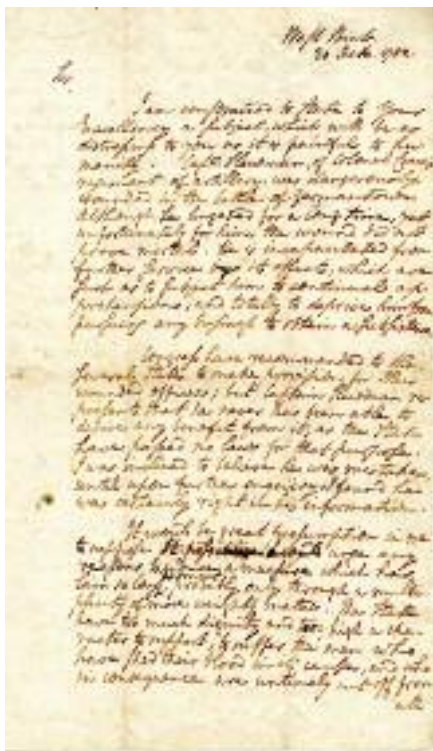 West Point
20 Feb. 1782
Sir,
I am constrained to state to your
Excellency a subject, which will be as
distressful to you as it is painful to
Capt. of Colonel
regiment of artillery was dangerously
wounded in the battle of Germantown
Although he lingered for a long time, yet
unfortunately for him, the wound did not
prove mortal. He is incapacitated from
further service by its effects, which are
such as to subject him to continual
and totally to deprive him from
pursuing any business to obtain a subsistence.
Congress have recommended to the
several States to make provision for their
wounded officers; but Captain
that he never has been able to
derive any benefit from it, as the State
have passed no laws for that purpose.
I was inclined to believe he was mistaken
until upon further enquiry I found he
was certainly right in his information.
It would be great presumption in me
to suppose were any
reasons a measure which had
been so long, probably only through a multi-
plicity of more weighty matters. The State
have too much dignity and too high a cha-
racter to support, to suffer the men who
have shed their blood in its cause, and who
in consequence are entirely cut off from